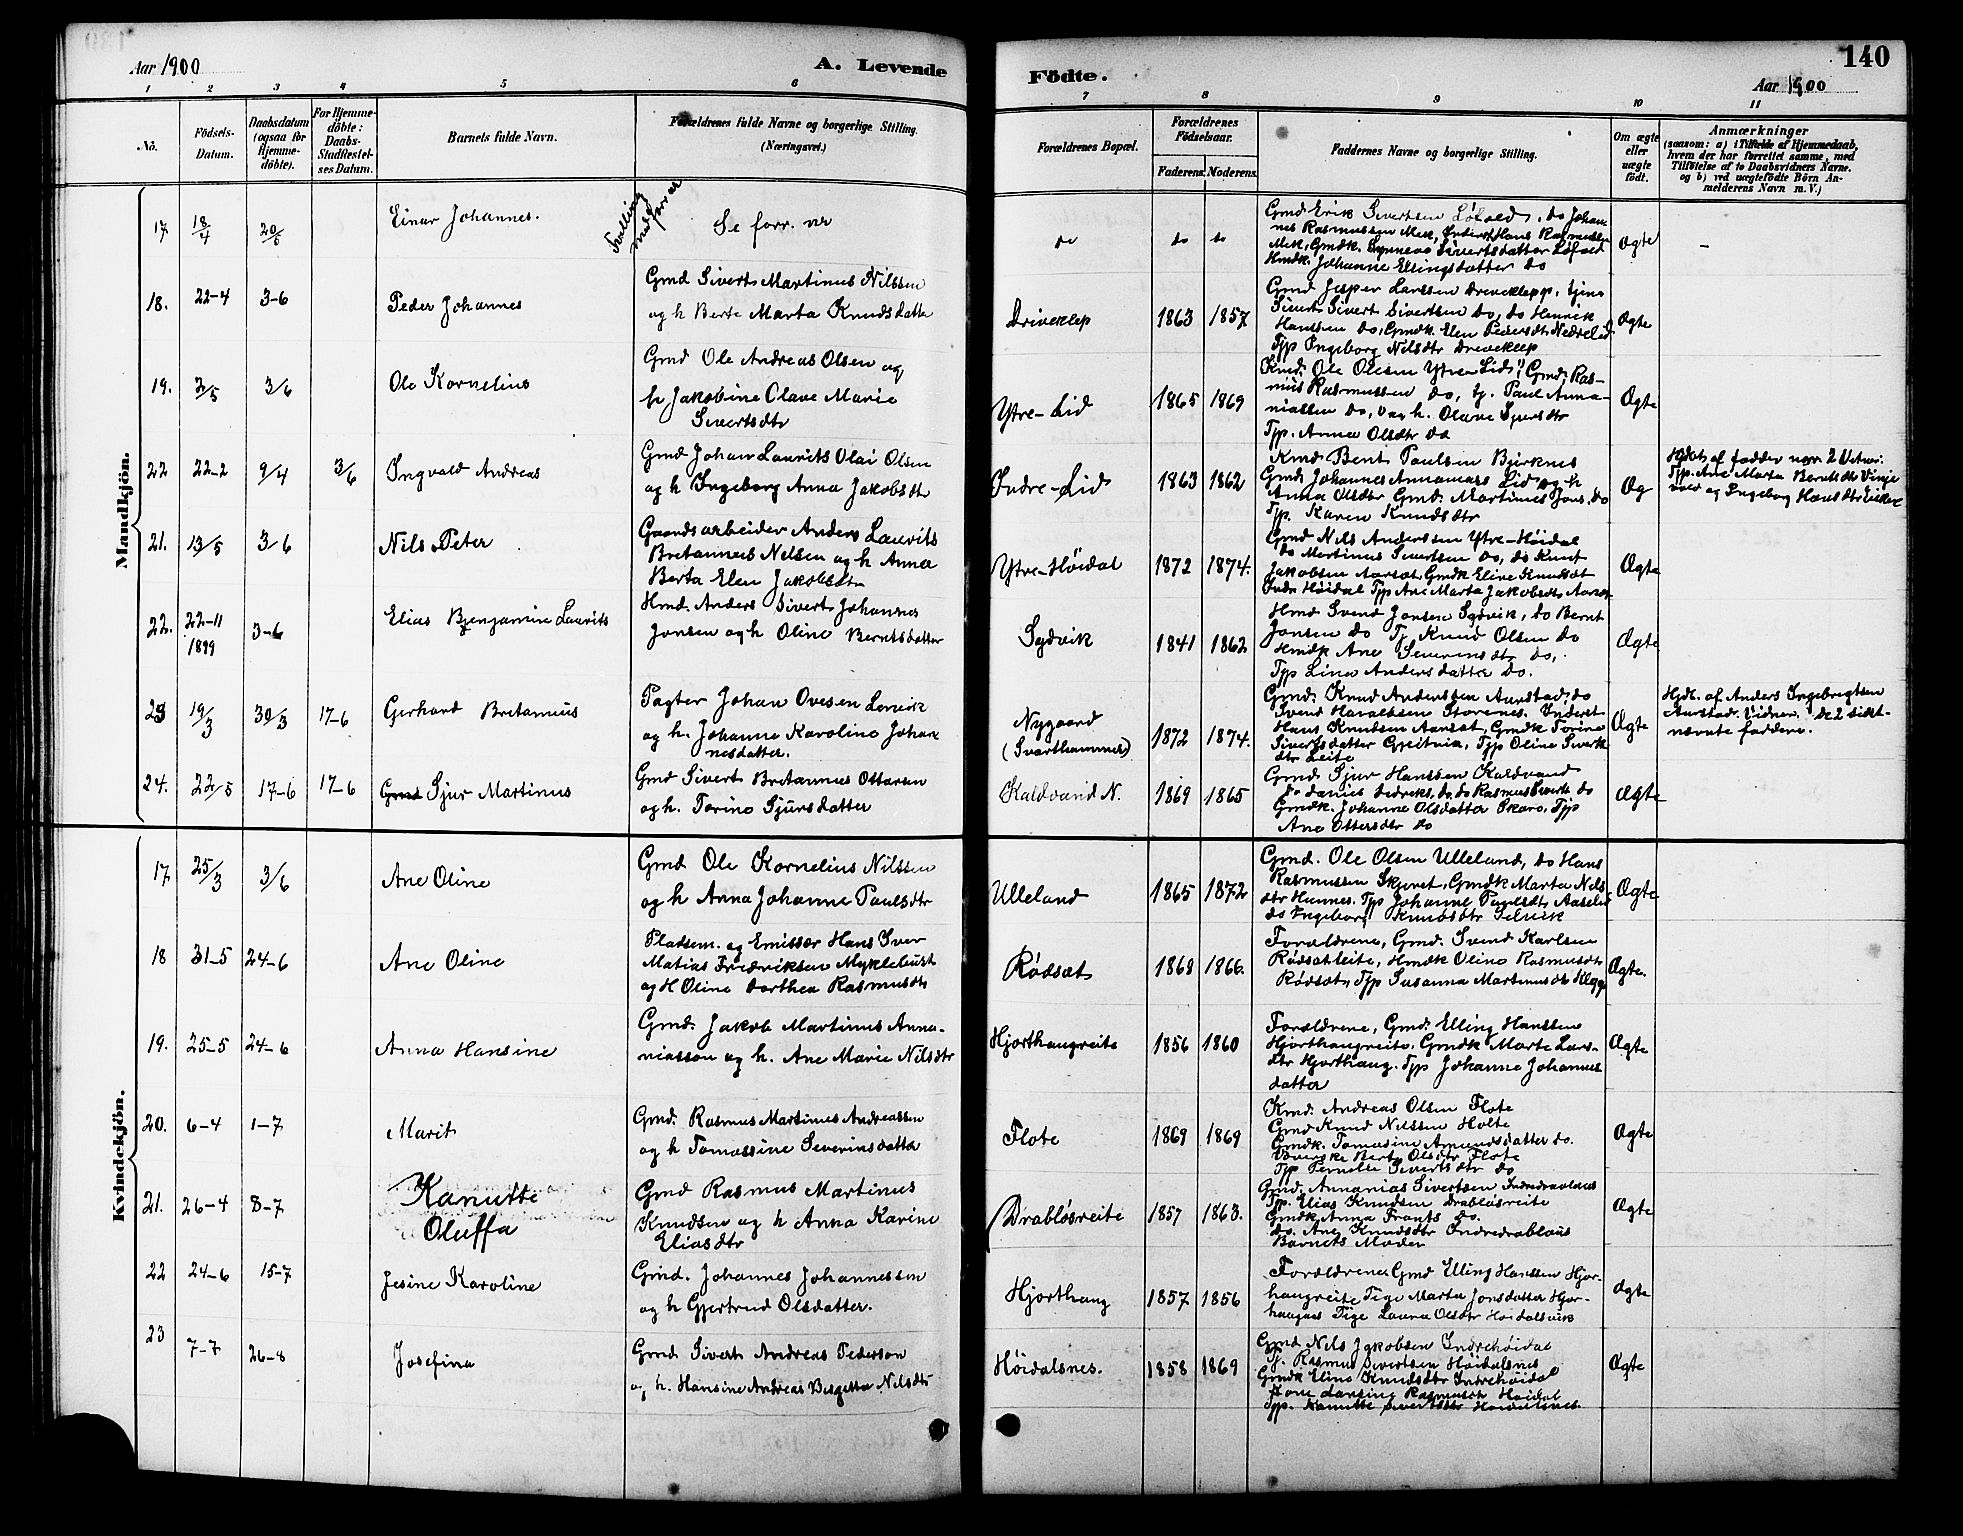 Aar 1900
A. Levende
Födte.
140
Aar 1900
1 2 3 4 5 6 7 8 9 10 11
No.
Födsels-
Datum.
Daabsdatum
(ogsaa for
Hjemme-
döbte).
For Hjemme-
döbte:
Daabs-
Stadfæstel-
ses Datum.
Barnets fulde Navn.
Forældrenes fulde Navne og borgerlige Stilling.
(Næringsvei.)
Forældrenes Bopæl.
Forældrenes
Födselsaar.
Faderens. Moderens.
Faddernes Navne og borgerlige Stilling.
Om ægte
eller
uægte
födt.
Anmærkninger
(saasom: a) i Tilfælde af Hjemmedaab,
hvem der har forrettet samme, med
Tilföielse af to Daabsvidners Navne.
og b) ved uægtefödte Börn An-
melderens Navn m. V.)
Mandkjön.
17 18/4 20/5 Einar Johannes.
Tvilling
med
forr nr
Se forr. nr
do do do
Gmd Erik Sivertsen Löfold, do Johan
nes Rasmussen Mek, Inderst Hans Rasmussen
Mek, Gmdk. Synneve Sivertsdatter Löfold
Hmdk. Johanne Ellingsdatter do
Ægte –
18. 22-4 3-6 Peder Johannes
Gmd Sivert Martinus Nilssen
og h Berte Marta Knudsdatte
Driveklep 1863 1857
Gmd Jesper Larssen Driveklepp, tjene
Sivert Sivert Sivertsen do, do Henrik
Hanssen do, Gmdk. Elen Pedersdtr Nedrelid
Typ Ingeborg Nilsdtr Driveklep
Ægte
19. 2/5 3/6 Ole Kornelius
Gmd Ole Andreas Olsen og
h Jakobine Olave Marie
Sivertsdtr
Ytre-Lid 1865 1869
Kmd. Ole Olesen Ytre Lid, Gmd. Ras-
mus Rasmussen do, tj. Paul Anna-
niassen do, do og h. Olave Sjursdtr
Typ. Anna Olsdtr do
Ægte
22 22-2 9/4 3/6 Ingvald Andreas
Gmd Johan Laurits Olai Olsen
og h Ingeborg Anna Jakobsdtr
Indre-Lid 1863 1862
Kmd Bent Paulsen Bjerknes
Gmd Johannes Annanias Lid og h
Anna Olsdtr Gmd. Martinus Jons. do
Typ. Karen Knudsdtr
Æg
Hjdbt af fadder nr 2 Vitner:
Typ. Ane Marta Berntsdtr Vinje
vold og Ingeborg Hansdtr Eikrem
21. 13/5 3-6 Nils Peter
Gaardsarbeider Anders Laurits
Bretannus Nelsen og h Anna
Berta Elen Jakobsdtr
Ytre-Höidal 1872 1874.
Gmd Nils Anderssen Ytre-Höidal
do Martinus Sivertsen do, do Knut
Jakobsen Aarsæt, Gmdk Eline Knudsdt
Indr. Höidal Typ Ane Marta Jakobsdtr Aarsæt
Ægte
22. 22-11
1899 3-6 Elias Benjamine Laurits
Hmd. Anders Sivert Johannes
Jonsen og h Oline Berntsdatter
Sydvik 1841 1862
Hmd Svend Jonsen Sydvik, do Bernt
Jonsen do Tj Knud Olsen do
Hmdk Ane Severinsdtr do,
Typ Lina Andersdatter do.
Ægte
23 19/3 30/3 17-6 Gerhard Bretannus
Pagter Johan Ovesen Lervik
og h. Johanne Karoline Johan
nesdatter.
Nygaard
(Svarthammer) 1872 1874.
Gmd. Knud Anderssen Aurstad, do
Svend Haraldsen Storenes. Inderst
Hans Knutsen Aarsæt, Gmdk Torine
Sivertsdatter Gjeitvia, Typ Oline Siverts
dtr Leite
Ægte
Hjdt. af Anders Ingebrigtsen
Aurstad. Vidner. De 2 sidst-
nævnte faddere.
24. 22/5 17-6 17-6 Gmd Sjur Martinus
Gmd Sivert Bretannus Ottarsen
og h. Torine Sjursdatter
Kaldvand N. 1869 1865
Gmd Sjur Hanssen Kaldvand
do Daniel Didriks. do, do Rasmus Siverts do
Gmdk. Johanne Olsdatter Skare, Typ
Ane Ottersdtr do
Ægte
Kvindekjön.
17 25/3 3/6 Ane Oline
Gmd Ole Kornelius Nilssen
og h Anna Johanne Paulsdtr
Ulleland 1865 1872
Gmd. Ole Olsen Ulleland, do Hans
Rasmussen Skjervet, Gmdk Marta Nils
dtr Hunnes. Typ Johanne Paulsdtr Aaselid
do Ingeborg Knudsdtr
Ægte
18 31-5 24-6 Ane Oline
Pladsem. og Emissær Hans Iver
Matias Fredriksen Myklebust
og H Oline Dorthea Rasmusdtr
Rödsæt 1869 1866.
Forældrene, Gmd. Svend Karlsen
Rödsætleite, Hmdk Oline Rasmusdtr
Rödsæt, Typ Susanna Martinusdtr
Ægte.
19. 25-5 24-6 Anna Hansine
Gmd. Jakob Martinus Anna-
niasson og h. Ane Marie Nilsdtr
Hjorthaugreite 1856 1860
Forældrene, Gmd. Elling Hanssen
Hjorthaugreite, Gmdk Marte Lars-
dtr Hjorthaug. Typ Johanne Johannes
datter
Ægte
20. 6-4 1-7 Marit
Gmd. Rasmus Martinus Andreassen
og h Tomassine Severinsdatter
Flote 1869 1869
Kmd. Andreas Olsen Flote
Gmd Knud Nilssen Holte
Gmdk. Tomasine Amundsdatter do.
Berte Olsdtr Flote
Typ Pernelle Sivertsdtr do
Ægte
21. 26-4 8-7 Kanutte
Oluffa
Gmd Rasmus Martinus
Knudsen og h Anna Karine
Eliasdtr
Drablösreite 1857 1863.
Gmd. Annanias Sivertsen Indredrablaus
Tp. Elias Knudsen Drablösreite
Gmdk Anna Frants do.
do. Ane Knudsdtr Indredrablaus
Barnets Moder
Ægte
22 24-6 15-7 Jesine Karoline
Gmd. Johannes Johannessen
og h Gjertrud Olsdatter.
Hjorthaug 1857 1856
Forældrene Gmd Elling Hanssen Hjor-
haugreite Tige Marta Jonsdatter Hjor-
haugnes Tige Laura Olsdtr Höidalsvik
Ægte
23 7-7 26-8 Josefina
Gmd Sivert Andreas Pederson
og h. Hansine Andreas Birgitta Nilsdtr
Höidalsnes. 1858 1869
Gmd Nils Jakobsen Indrehöidal
Tj. Rasmus Sivertsen Höidalsnes
Gmdk Eline Knudsdtr Indrehöidal
Kone Lansine Rasmusen Höidal
Typ. Kanutte Sivertsdtr Höidalsnes
Ægte